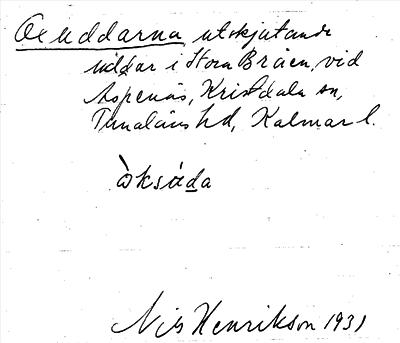 Oxuddarna, utskjutande
uddar i Stora Bråen, vid
Aspenäs, Kristdala sn,
Tunaläns hd, Kalmar l.
òksúda
Nils Henrikson 1931